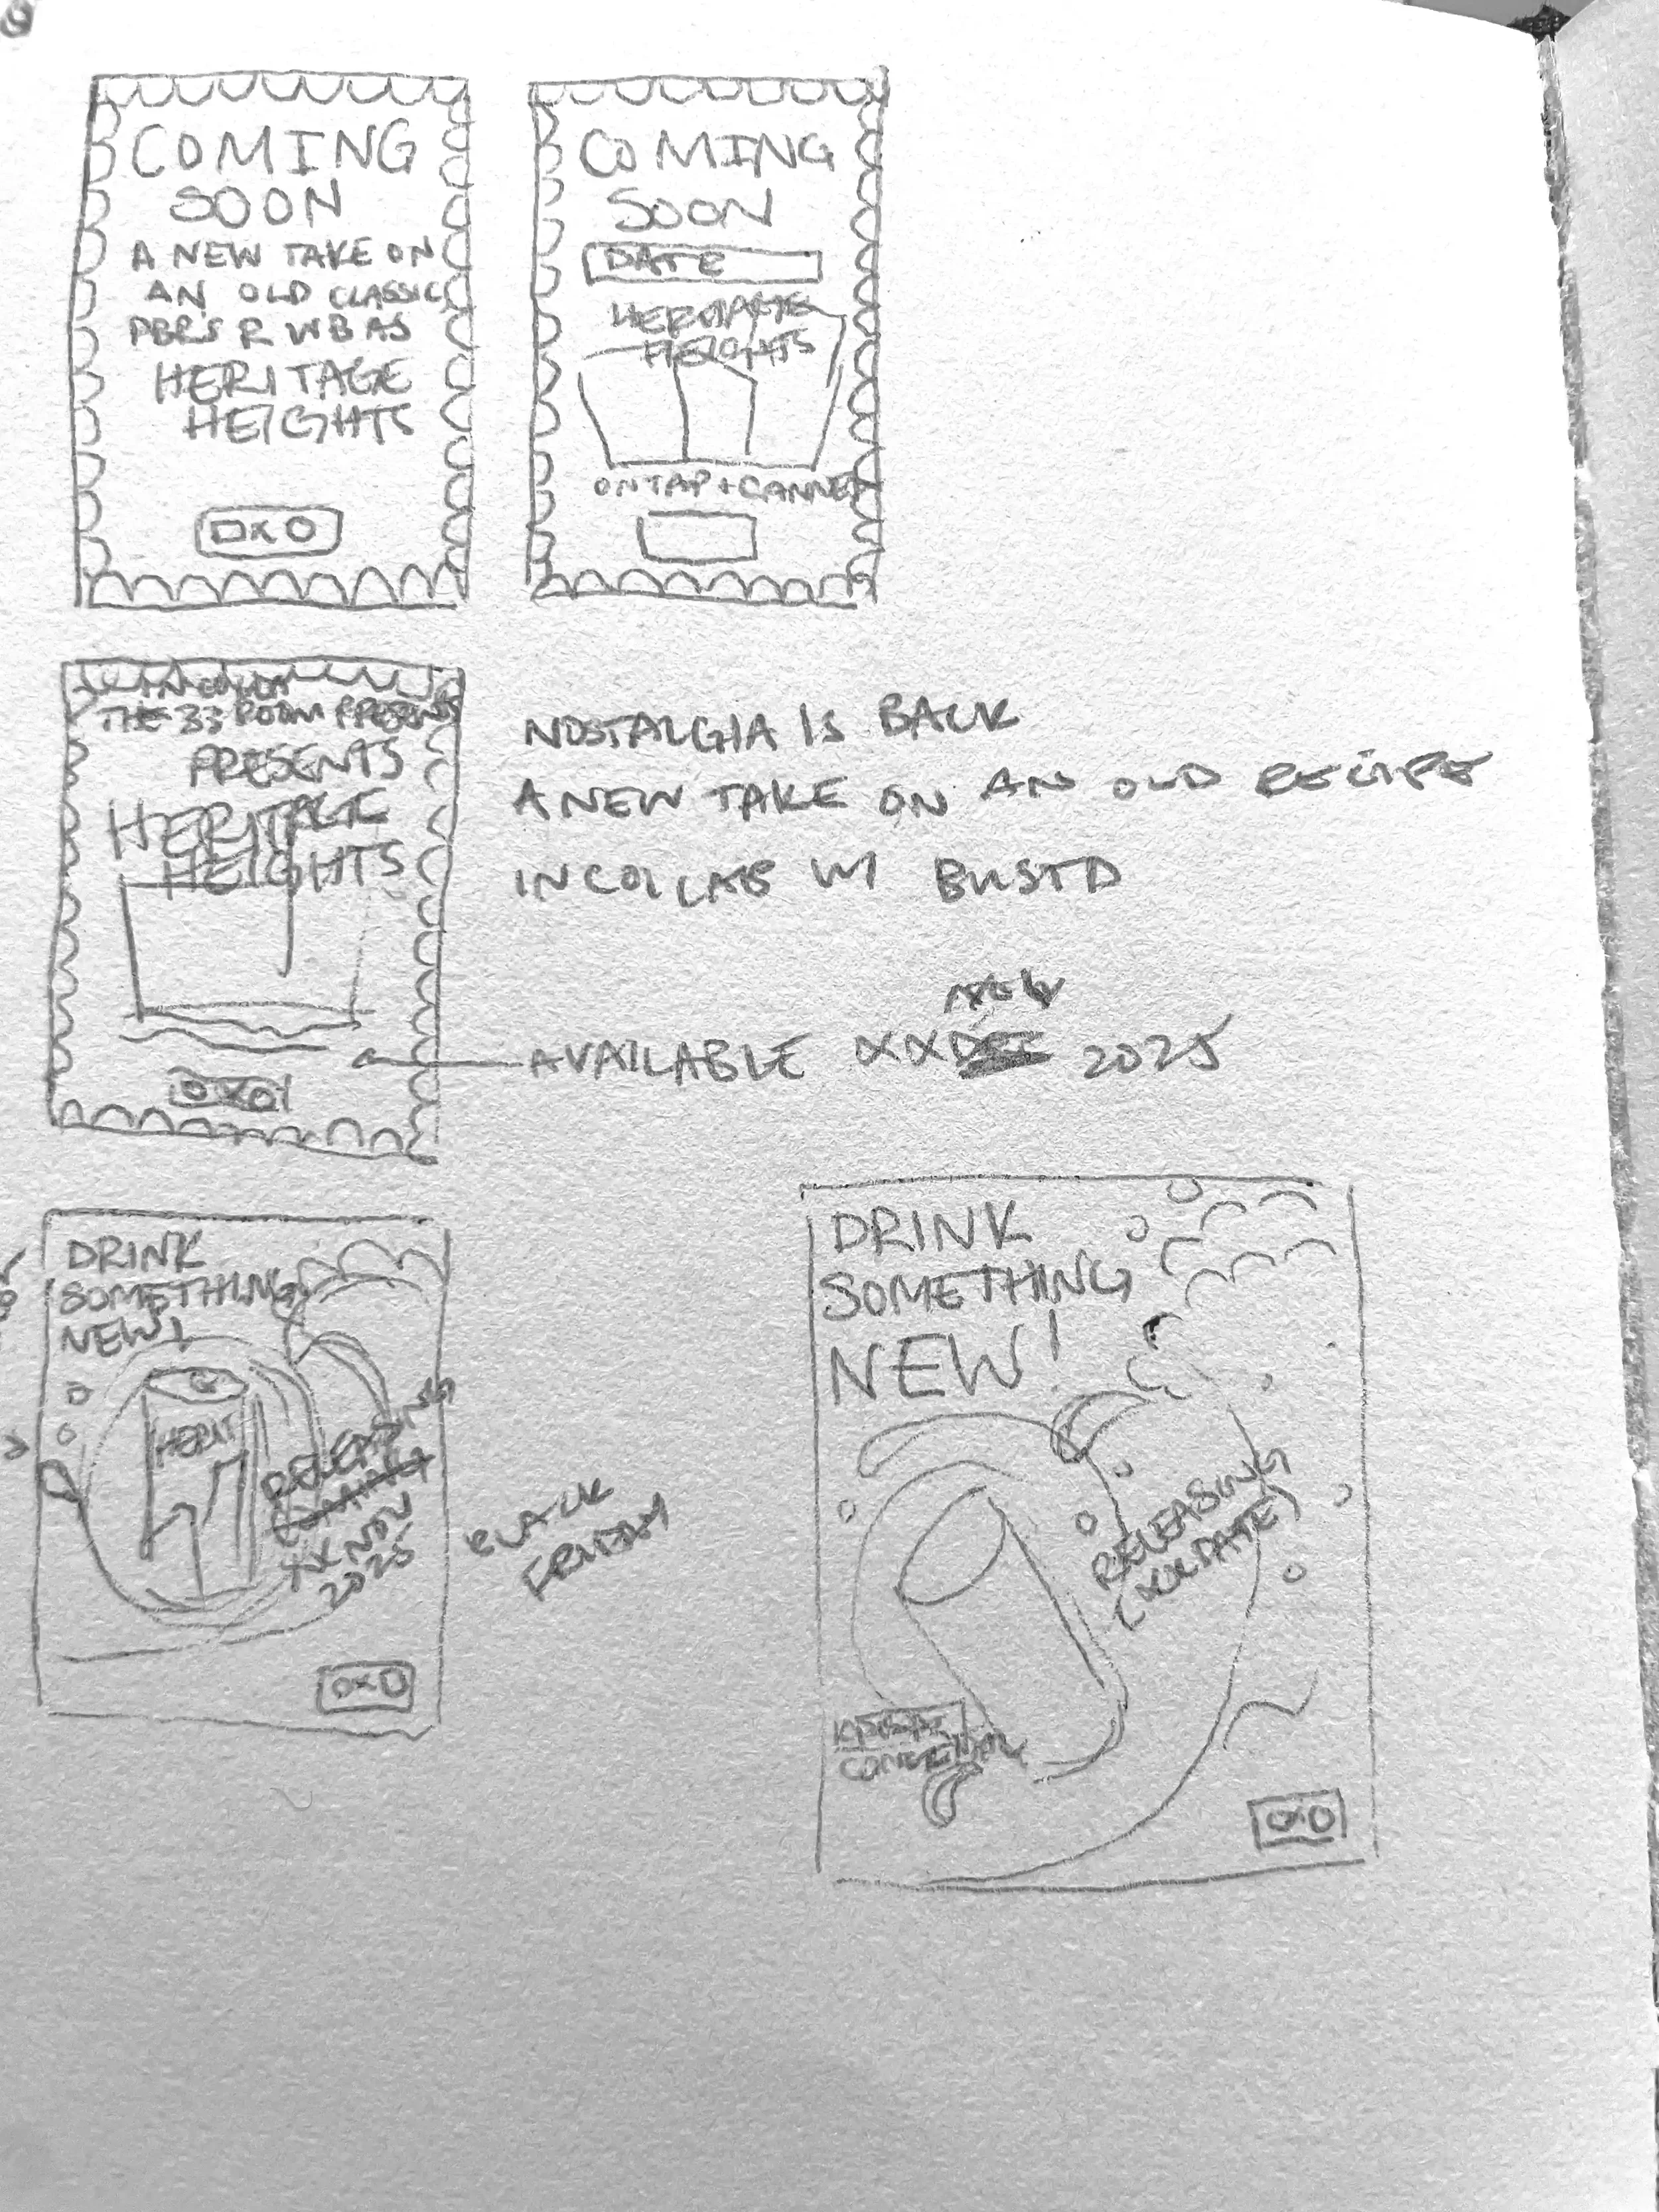 COMING
SOON
A NEW TAKE ON
AN OLD CLASSIC
HERITAGE
HEIGHTS
OXO
COMING
SOON
DATE
HERITAGE
HEIGHTS
ON TAP + CANNED
THE 33 ROOM PRESENTS
PRESENTS
HERITAGE
HEIGHTS
OXO
NOSTALGIA IS BACK
A NEW TAKE ON AN OLD RECIPE
IN COLLAB W/ BUSTD
NOV
AVAILABLE XX DEC 2025
DRINK
SOMETHING
NEW!
HERIT
RELEASING
COMING
XX NOV
2025
OXO
BLACK
FRIDAY
DRINK
SOMETHING
NEW!
RELEASING
(XX DATE)
OXO